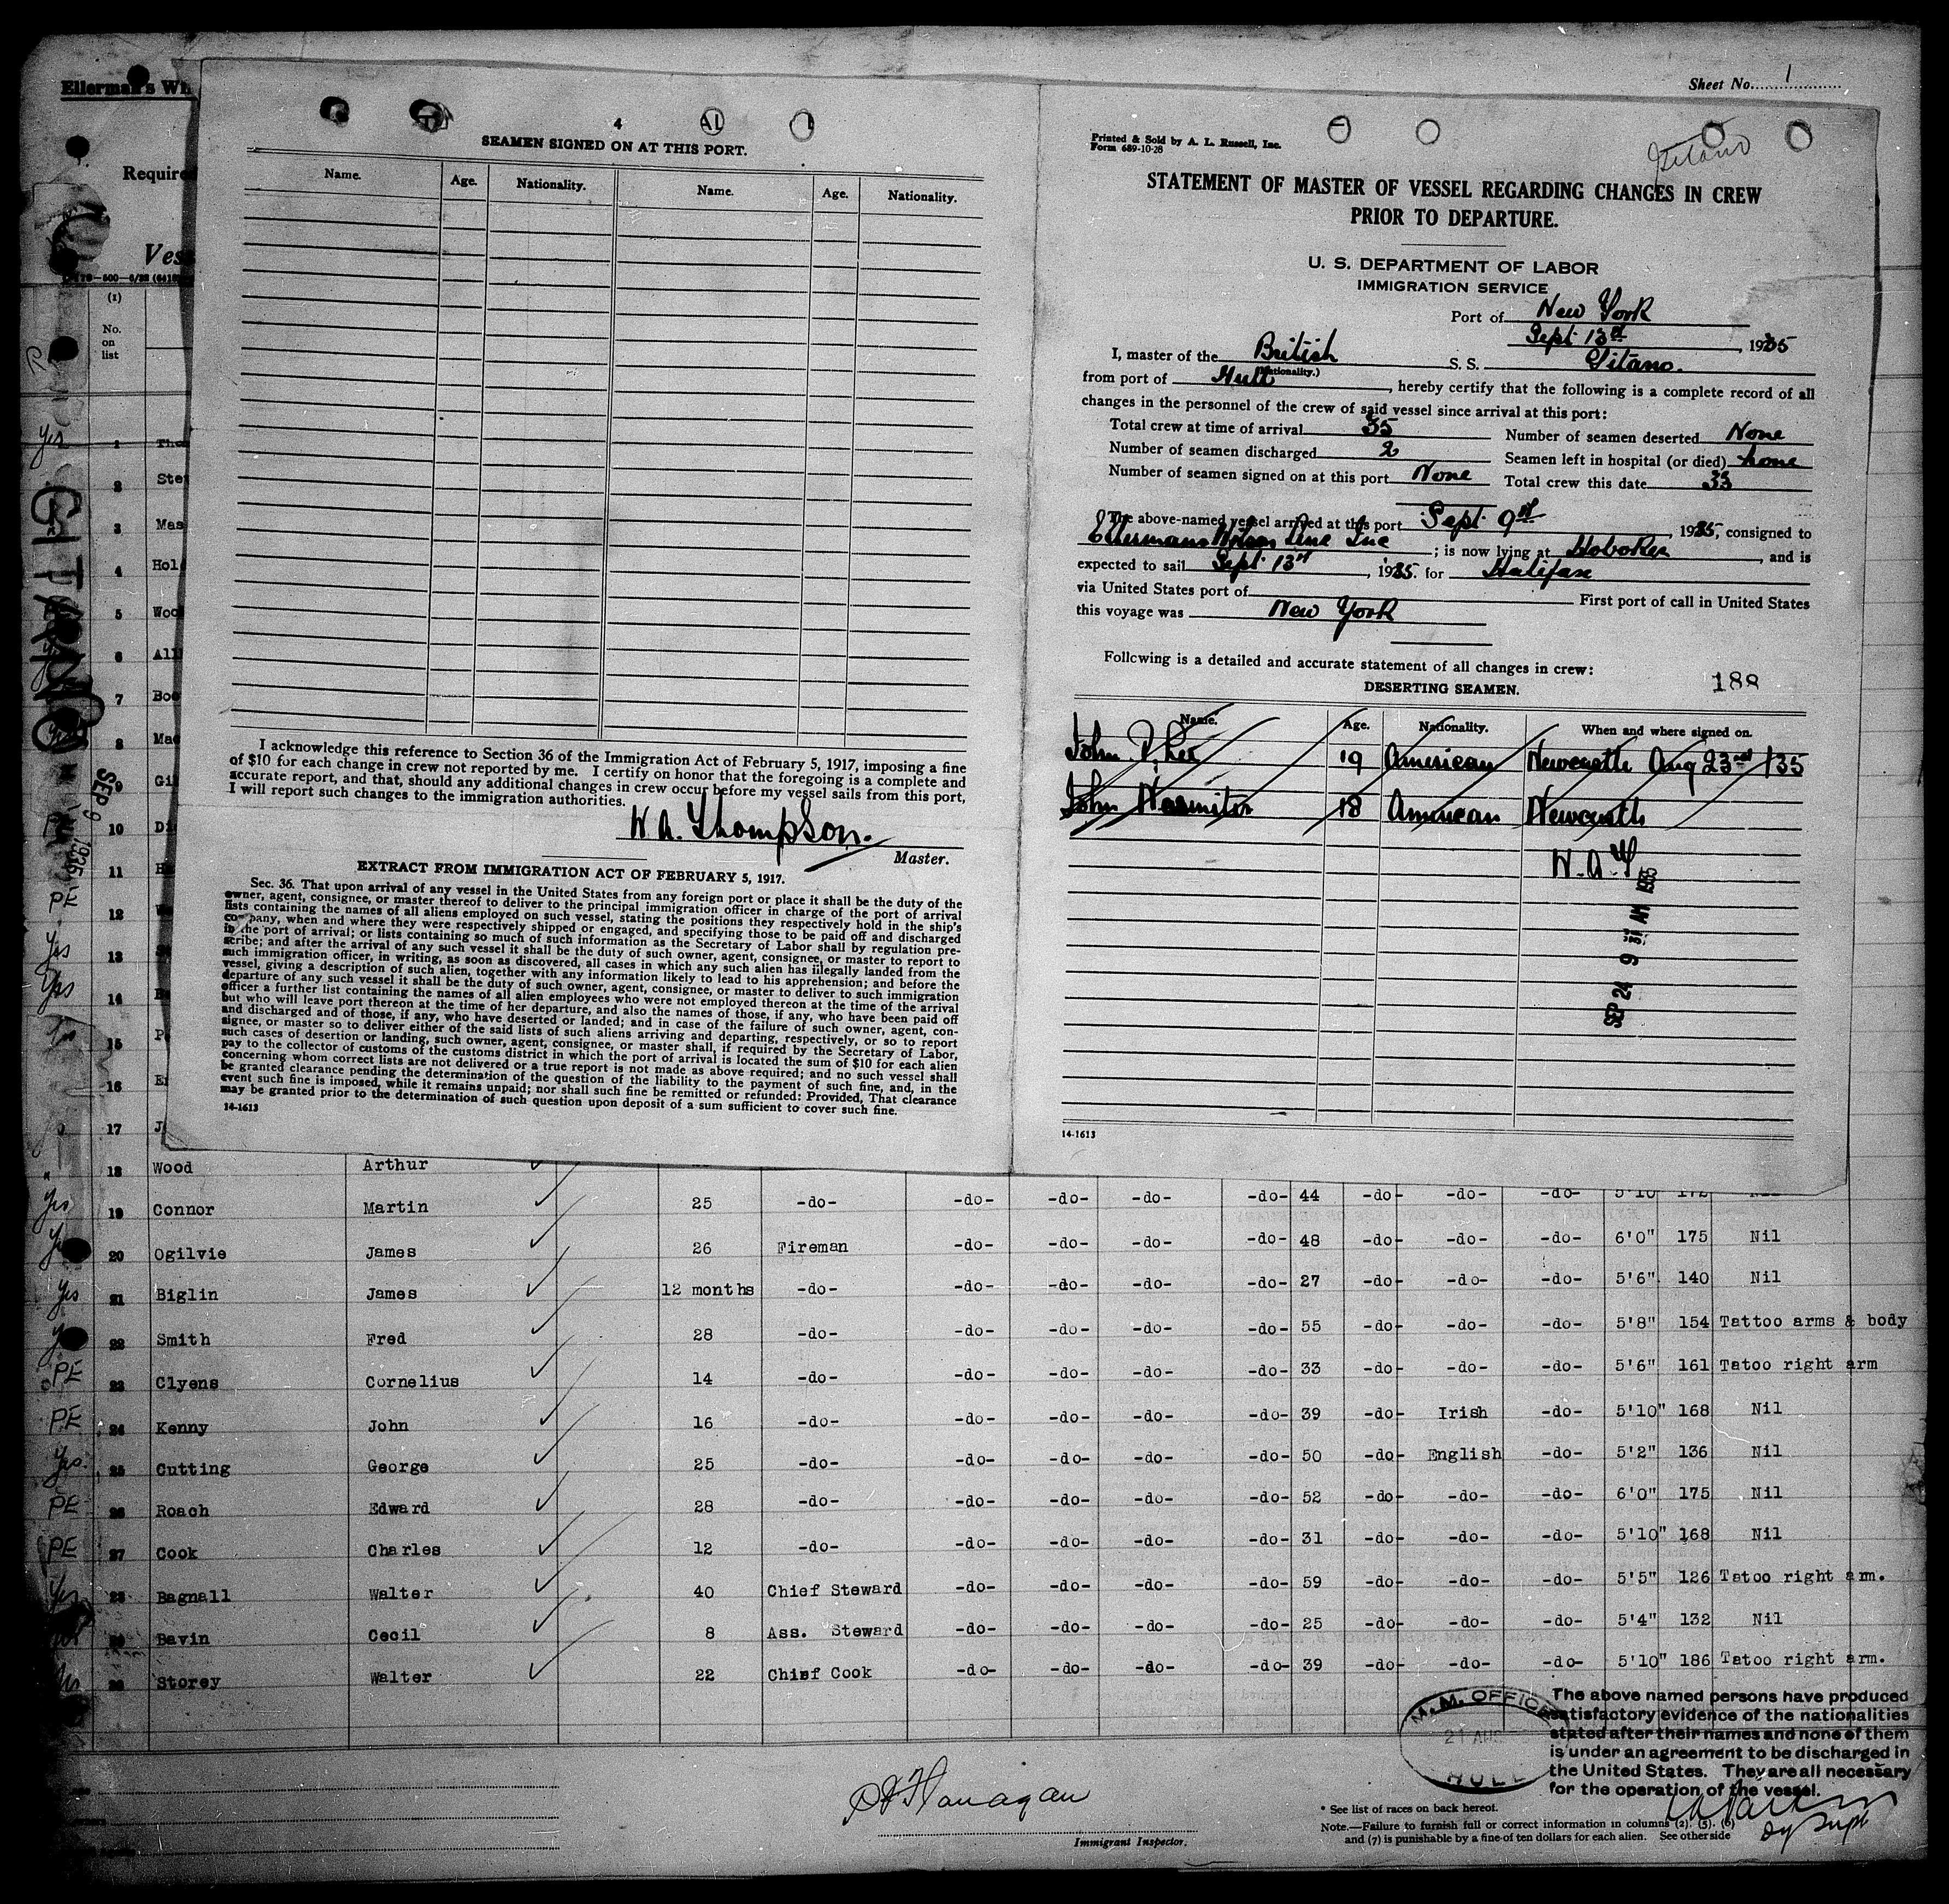 Ellerman's
Sheet No. 1
Required
Vess
(1)
No.
on
list
4
AL
SEAMEN SIGNED ON AT THIS PORT.
Name. Age. Nationality. Name. Age. Nationality.
I acknowledge this reference to Section 36 of the Immigration Act of February 5, 1917, imposing a fine
of $10 for each change in crew not reported by me. I certify on honor that the foregoing is a complete and
accurate report, and that, should any additional changes in crew occur before my vessel sails from this port,
I will report such changes to the immigration authorities.
W. A. Thompson.
Master.
EXTRACT FROM IMMIGRATION ACT OF FEBRUARY 5, 1917.
Sec. 36. That upon arrival of any vessel in the United States from any foreign port or place it shall be the duty of the
owner, agent, consignee, or master thereof to deliver to the principal immigration officer in charge of the port of arrival
lists containing the names of all aliens employed on such vessel, stating the positions they respectively hold in the ship's
company, when and where they were respectively shipped or engaged, and specifying those to be paid off and discharged
in the port of arrival; or lists containing so much of such information as the Secretary of Labor shall by regulation pre-
scribe; and after the arrival of any such vessel it shall be the duty of such owner, agent, consignee, or master to report to
such immigration officer, in writing, as soon as discovered, all cases in which any such alien has illegally landed from the
vessel, giving a description of such alien, together with any information likely to lead to his apprehension; and before the
departure of any such vessel it shall be the duty of such owner, agent, consignee, or master to deliver to such immigration
officer a further list containing the names of all alien employees who were not employed thereon at the time of the arrival
but who will leave port thereon at the time of her departure, and also the names of those, if any, who have been paid off
and discharged and of those, if any, who have deserted or landed; and in case of the failure of such owner, agent, con-
signee, or master so to deliver either of the said lists of such aliens arriving and departing, respectively, or so to report
such cases of desertion or landing, such owner, agent, consignee, or master shall, if required by the Secretary of Labor,
pay to the collector of customs of the customs district in which the port of arrival is located the sum of $10 for each alien
concerning whom correct lists are not delivered or a true report is not made as above required; and no such vessel shall
be granted clearance pending the determination of the question of the liability to the payment of such fine, and, in the
event such fine is imposed, while it remains unpaid; nor shall such fine be remitted or refunded: Provided, That clearance
may be granted prior to the determination of such question upon deposit of a sum sufficient to cover such fine.
14-1613
Printed & Sold by A. L. Russell, Inc.
Form 689-10-28
Gitano
STATEMENT OF MASTER OF VESSEL REGARDING CHANGES IN CREW
PRIOR TO DEPARTURE.
U. S. DEPARTMENT OF LABOR
IMMIGRATION SERVICE
Port of New York
Sept 13th, 1935
I, master of the British S. S. Gitano.
(Nationality.)
from port of Hull, hereby certify that the following is a complete record of all
changes in the personnel of the crew of said vessel since arrival at this port:
Total crew at time of arrival 35 Number of seamen deserted None
Number of seamen discharged 2 Seamen left in hospital (or died) none
Number of seamen signed on at this port None Total crew this date 33
The above-named vessel arrived at this port Sept 9th, 1935, consigned to
Ellermans Wilson Line Inc; is now lying at Hoboken, and is
expected to sail Sept 13th, 1935. for Halifax
via United States port of First port of call in United States
this voyage was New York
Following is a detailed and accurate statement of all changes in crew:
DESERTING SEAMEN. 188
Name. Age. Nationality. When and where signed on.
John Lee 19 American Newcastle Aug 23rd /35
John 18 American Newcastle
W. A. T
SEP 24 9 AM 1935
14-1613
GITANO
SEP 9 1935
1
2 Ste
3 Mas
4 Hol
5 Woo
6 All
7 Boo
8 Mac
9 Gil
10
11
PE 12
Yes 13
Yes 14
15
16
17 J
18 Wood Arthur
Yes 19 Connor Martin 25 -do- -do- -do- -do- -do- 44 -do- -do- -do- 5'10 172
20 Ogilvie James 26 Fireman -do- -do- -do- -do- 48 -do- -do- -do- 6'0" 175 Nil
Yes 21 Biglin James 12 months -do- -do- -do- -do- -do- 27 -do- -do- -do- 5'6" 140 Nil
22 Smith Fred 28 -do- -do- -do- -do- -do- 55 -do- -do- -do- 5'8" 154 Tattoo arms & body
PE 23 Clyens Cornelius 14 -do- -do- -do- -do- -do- 33 -do- -do- -do- 5'6" 161 Tatoo right arm
PE 24 Kenny John 16 -do- -do- -do- -do- -do- 39 -do- Irish -do- 5'10" 168 Nil
Yes 25 Cutting George 25 -do- -do- -do- -do- -do- 50 -do- English -do- 5'2" 136 Nil
PE 26 Roach Edward 28 -do- -do- -do- -do- -do- 52 -do- -do- -do- 6'0" 175 Nil
PE 27 Cook Charles 12 -do- -do- -do- -do- -do- 31 -do- -do- -do- 5'10" 168 Nil
Yes 28 Bagnall Walter 40 Chief Steward -do- -do- -do- -do- 59 -do- -do- -do- 5'5" 126 Tatoo right arm.
29 Bavin Cecil 8 Ass. Steward -do- -do- -do- -do- 25 -do- -do- -do- 5'4" 132 Nil
30 Storey Walter 22 Chief Cook -do- -do- -do- -do- 39 -do- -do- -do- 5'10" 186 Tatoo right arm.
M. M. OFFICE
21 AUG
HULL
The above named persons have produced
satisfactory evidence of the nationalities
stated after their names and none of them
is under an agreement to be discharged in
the United States. They are all necessary
for the operation of the vessel.
Dy Supt
Flanagan
Immigrant Inspector.
* See list of races on back hereof.
Note.—Failure to furnish full or correct information in columns (2), (5), (6)
and (7) is punishable by a fine of ten dollars for each alien. See other side